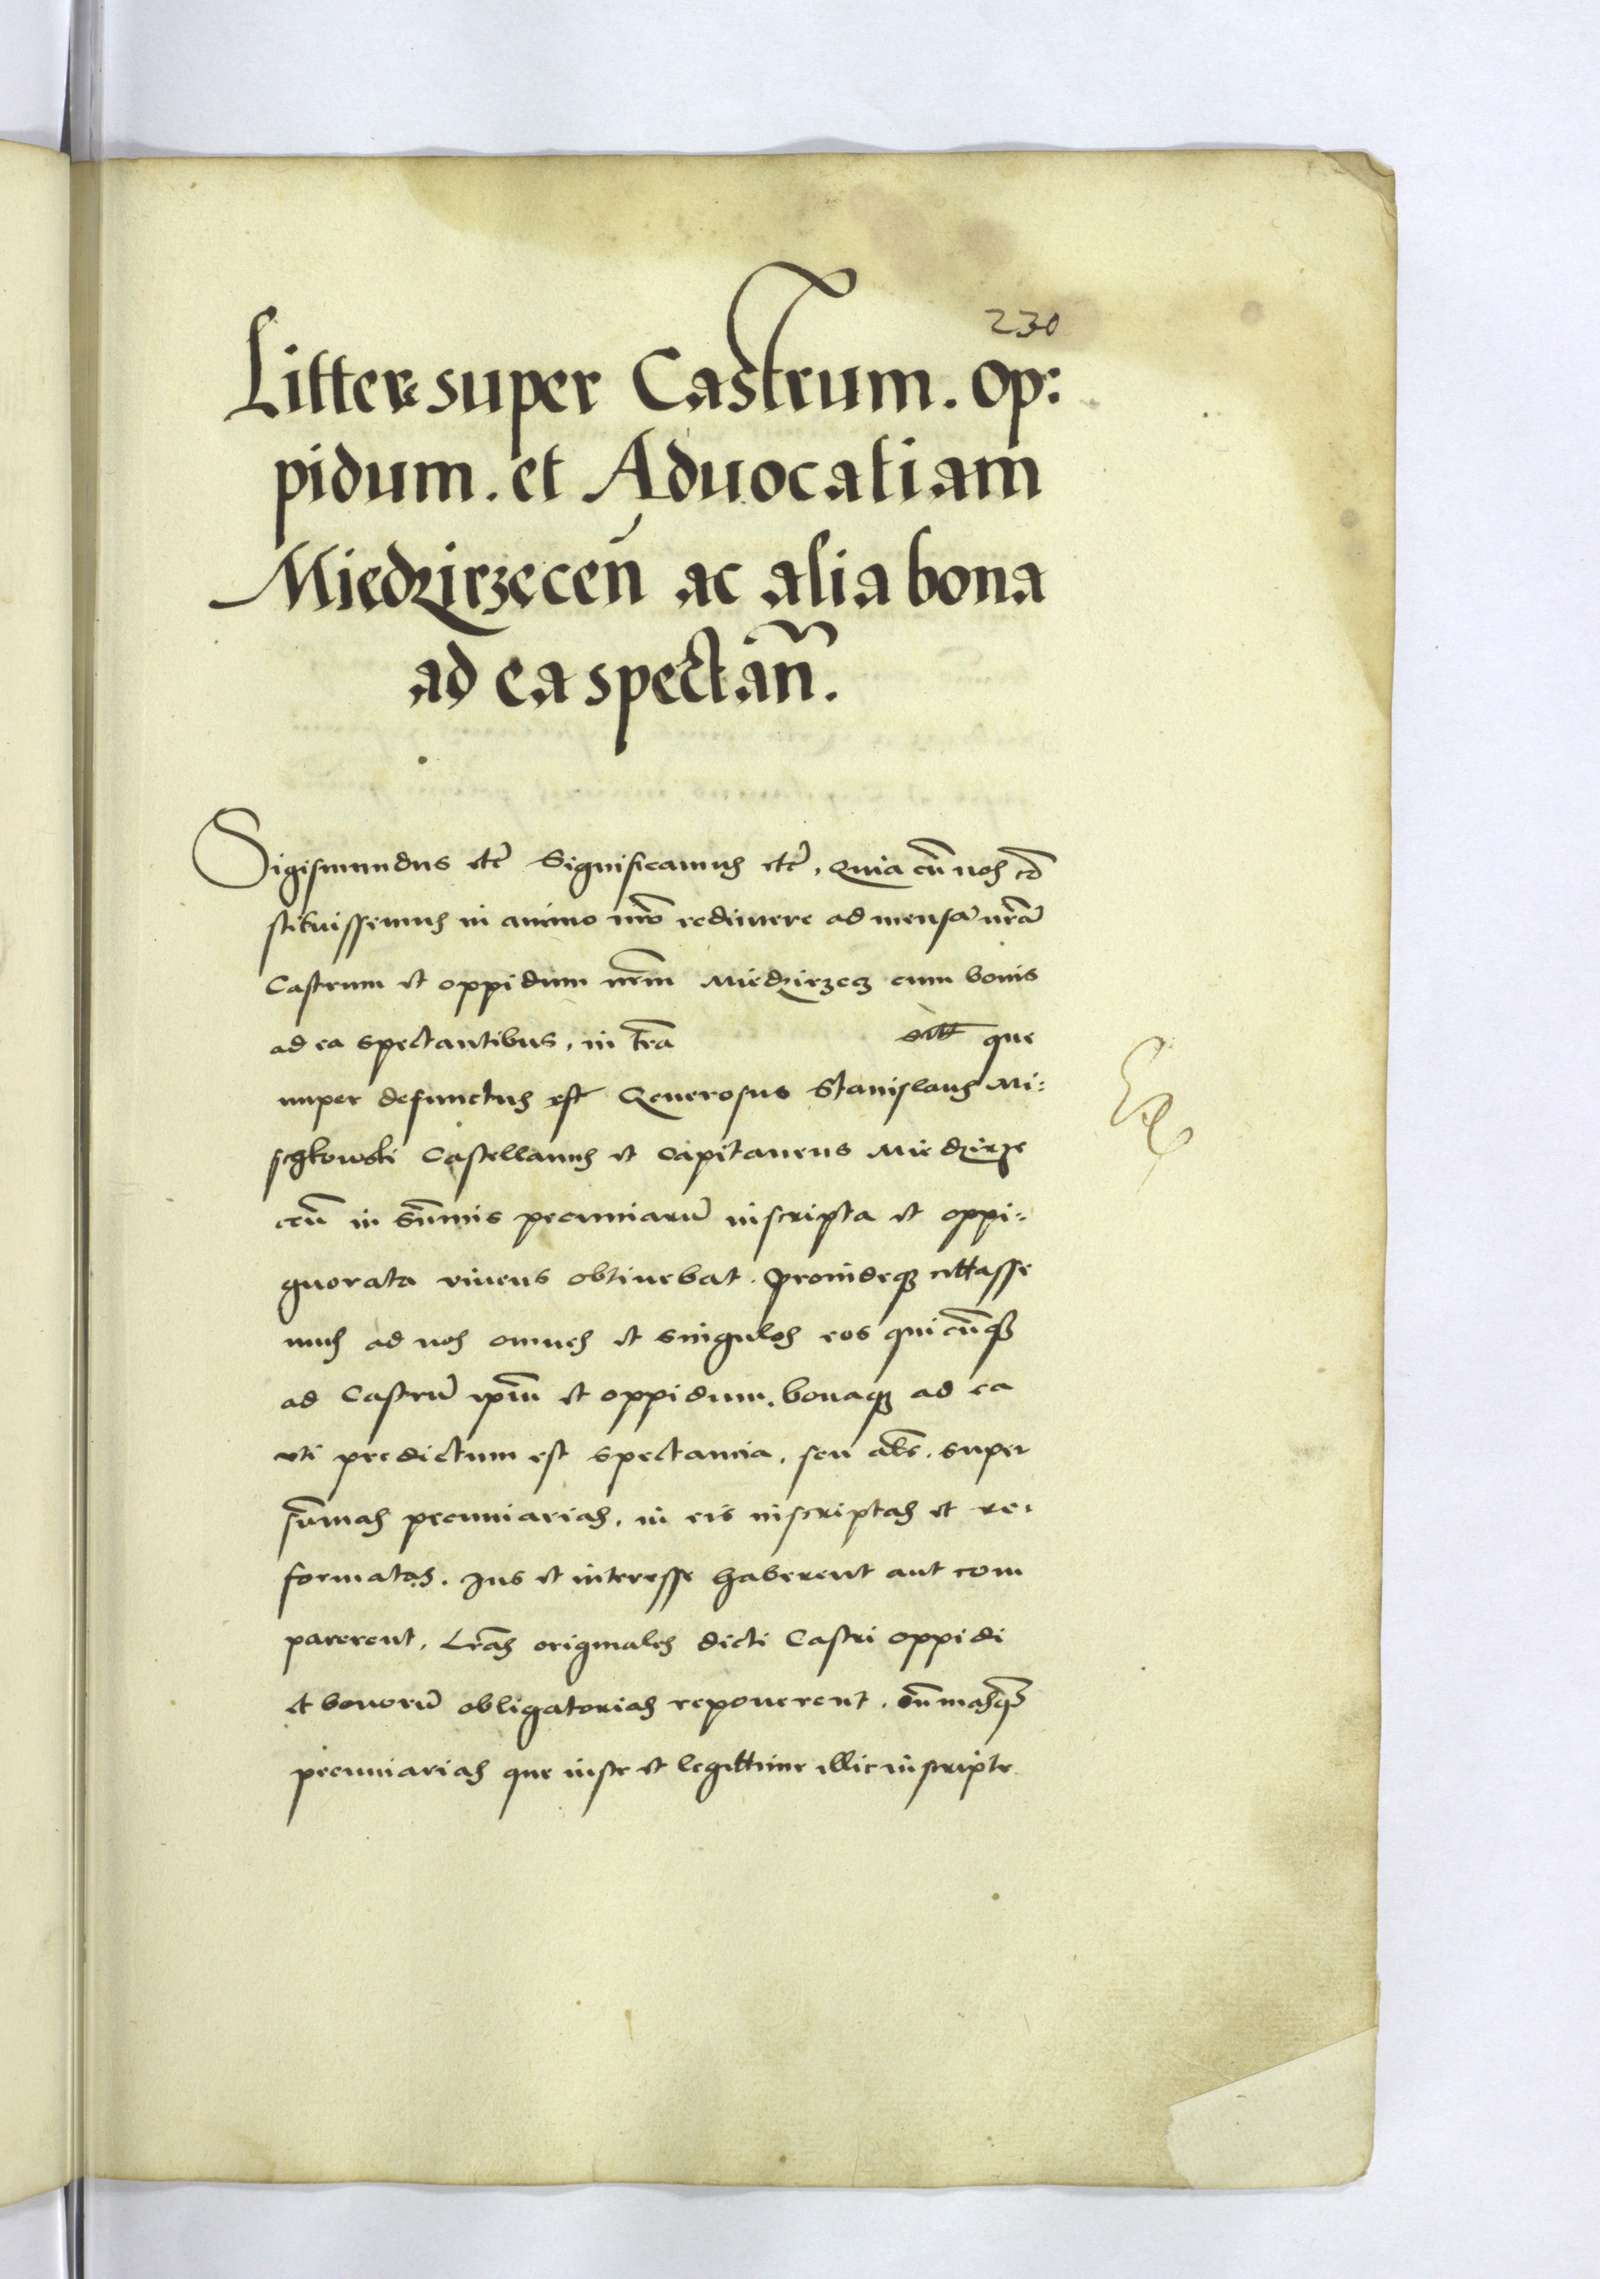 230
Litterę super Castrum. op:
pidum. et Aduocatiam
Miedzirzęcen̄ ac alia bona
ad ea spectan̄.
Sigismundus etc̄ Significamus etc̄. Quia cū nos cō
stituissemus in animo nr̄o redimere ad mensā nrā̄
Castrum et oppidum nr̄m Miedzirzecz cum bonis
ad ea spectantibus, in terra sitt que
nuper defunctus est Generosus Stanislaus Mi:
sczkowski Castellanus et Capitaneus Miedzirze
cen̄ in sūmis pecuniarū inscripta et oppi:
gnorata viuens obtinebat. Proindeq3 cittasse
mus ad nos omnes et singulos eos quicūq3
ad Castrū ip̄m et oppidum. bonaq3 ad ea
vti predictum est spectancia. seu als̄. super
sūmas pecuniarias, in eis inscriptas et re:
formatas. Ius et interesse haberent aut com
parerent. Lr̄as originales dicti Castri oppidi
et bonorū obligatorias reponerent. sūmasq3
pecuniarias que iuste et legittime illic inscripte